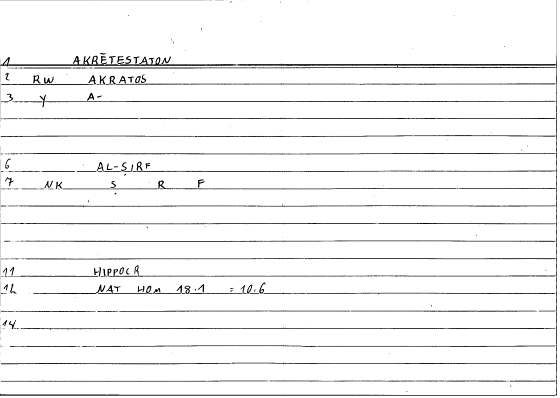 1 AKRĒTESTATON
2 RW AKRATOS
3 Y A-
6 AL-ṢIRF
7 NK Ṣ R F
11 HIPPOCR
12 NAT HOM 18.1 = 10.6
14